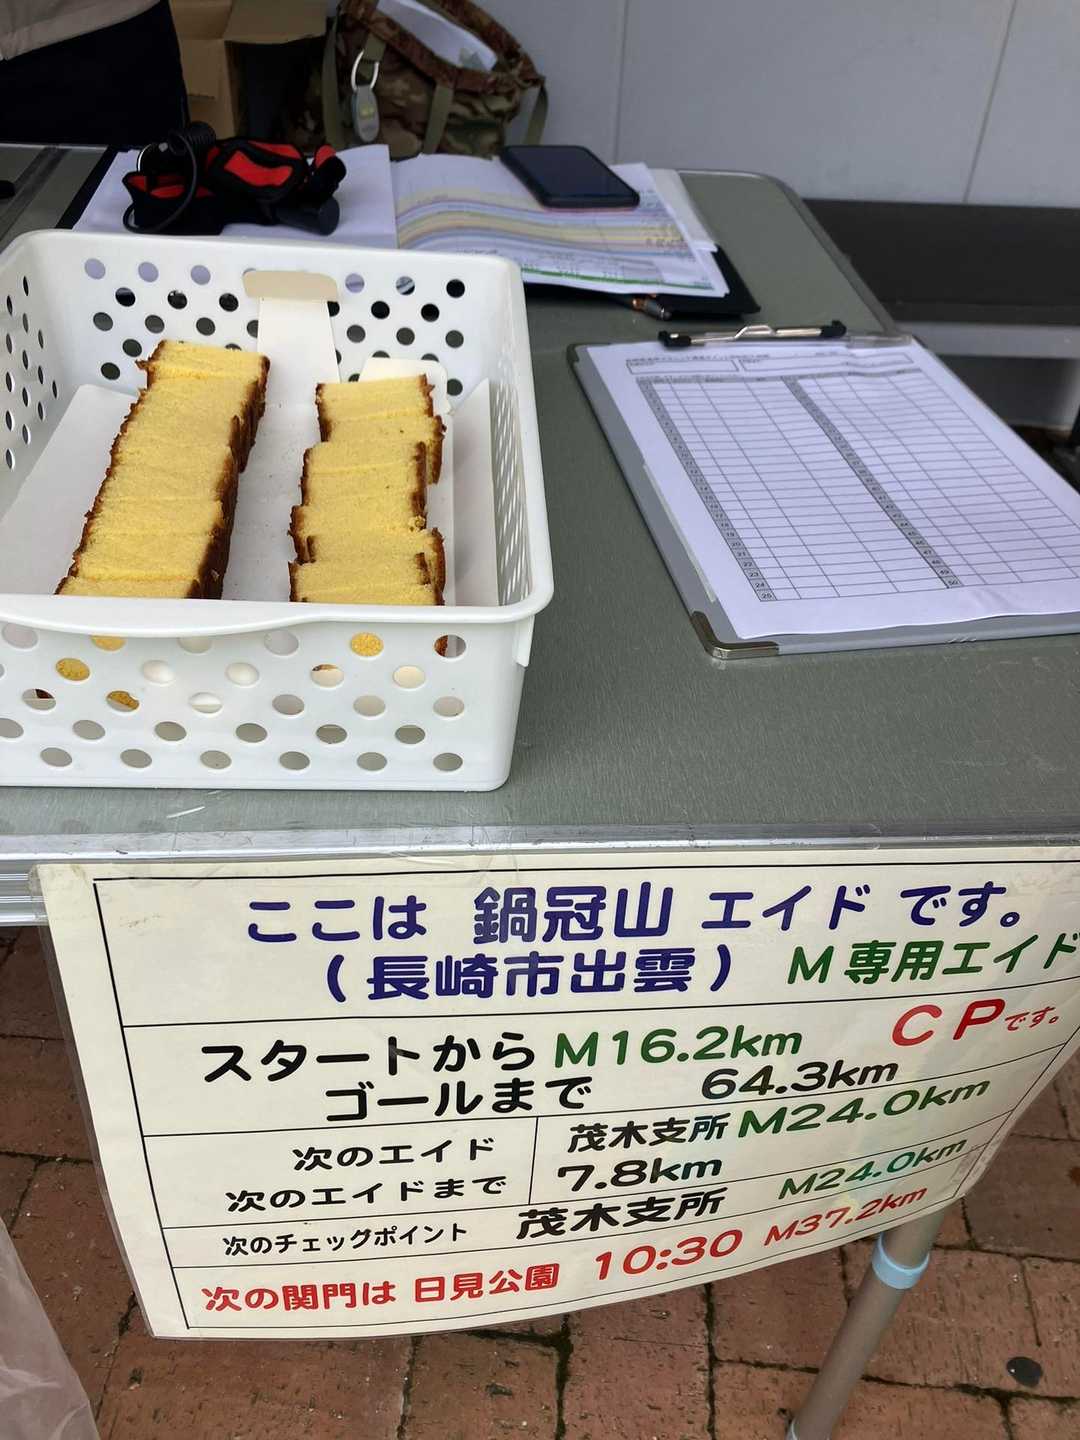 ここは 鍋冠山 エイド です。
(長崎市出雲) M専用エイド
スタートから M16.2km CPです。
ゴールまで 64.3km
次のエイド 茂木支所 M24.0km
次のエイドまで 7.8km
次のチェッグポイント 茂木支所 M24.0km
次の関門は 日見公園 10:30 M37.2km